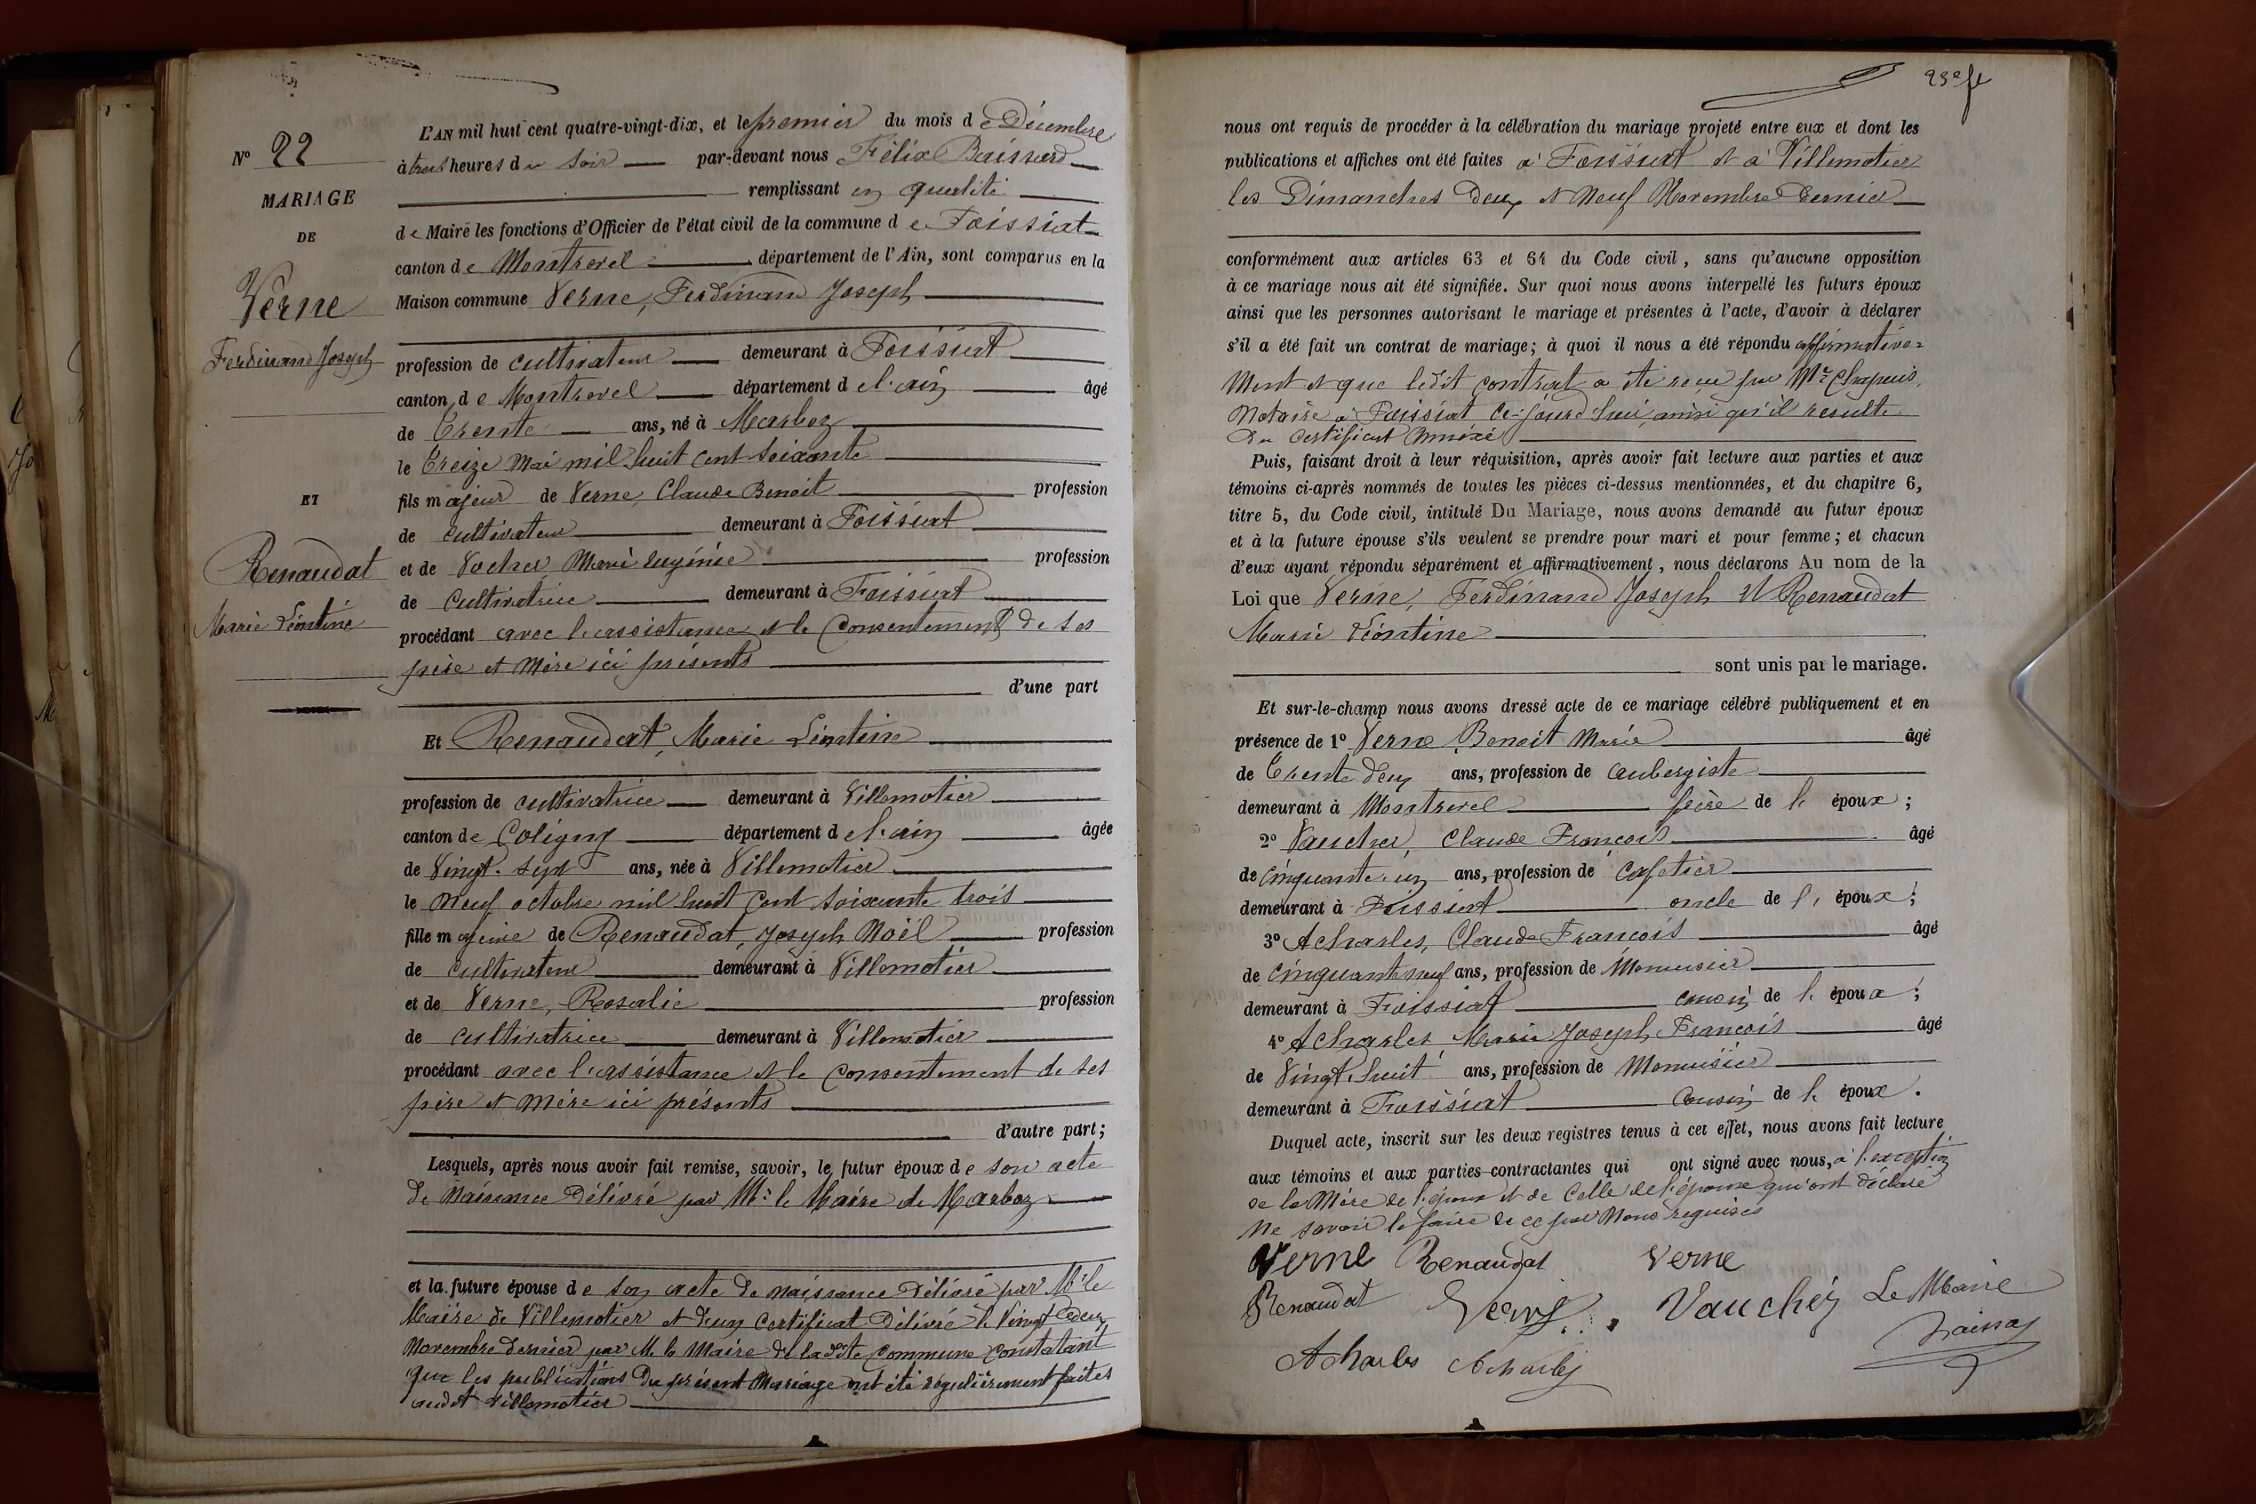 N° 22
MARIAGE
DE
Verne
Ferdinand Joseph
ET
Renaudat
Marie Léontine
L'AN mil huit cent quatre-vingt-dix, et le premier du mois de Décembre
à trois heures du soir par-devant nous Félix
remplissant en qualité
de Maire les fonctions d'Officier de l'état civil de la commune de Foissiat
canton de Montrevel département de l'Ain, sont comparus en la
Maison commune Verne, Ferdinand Joseph
profession de cultivateur demeurant à Foissiat
canton de Montrevel département de l'ain âgé
de Trente ans, né à Marboz
le Treize Mai mil huit cent soixante
fils majeur de Verne, Claude Benoit profession
de cultivateur demeurant à Foissiat
et de Vocher Marie Eugénie profession
de cultivatrice demeurant à Foissiat
procédant avec l'assistance et le Consentement de ses
père et Mère ici présents
d'une part
Et Renaudat, Marie Léontine
profession de cultivatrice demeurant à Villemotier
canton de Coligny département de l'ain âgée
de Vingt-sept ans, née à Villemotier
le Neuf octobre mil huit cent soixante trois
fille majeure de Renaudat, Joseph Noël profession
de cultivateur demeurant à Villemotier
et de Verne, Rosalie profession
de cultivatrice demeurant à Villemotier
procédant avec l'assistance et le Consentement de ses
père et Mère ici présents
d'autre part;
Lesquels, après nous avoir fait remise, savoir, le futur époux de son acte
de Naissance Délivré par Mr le Maire de Marboz
et la future épouse de son acte de naissance délivré par Mr le
Maire de Villemotier et d'un Certificat Délivré le Vingt
Novembre dernier par M. le Maire de ladite Commune Constatant
que les publications du présent Mariage ont été régulièrement faites
audit Villemotier
23e ft
nous ont requis de procéder à la célébration du mariage projeté entre eux et dont les
publications et affiches ont été faites à Foissiat et à Villemotier
les Dimanches Deux et Neuf Novembre dernier
conformément aux articles 63 et 64 du Code civil, sans qu'aucune opposition
à ce mariage nous ait été signifiée. Sur quoi nous avons interpellé les futurs époux
ainsi que les personnes autorisant le mariage et présentes à l'acte, d'avoir à déclarer
s'il a été fait un contrat de mariage; à quoi il nous a été répondu affirmative=
Ment et que ledit Contrat a été reçu par Mre Chapuis,
Notaire à Foissiat Ce-jourd'hui, ainsi qu'il résulte
Du Certificat Annéxé
Puis, faisant droit à leur réquisition, après avoir fait lecture aux parties et aux
témoins ci-après nommés de toutes les pièces ci-dessus mentionnées, et du chapitre 6,
titre 5, du Code civil, intitulé Du Mariage, nous avons demandé au futur époux
et à la future épouse s'ils veulent se prendre pour mari et pour femme; et chacun
d'eux ayant répondu séparément et affirmativement, nous déclarons Au nom de la
Loi que Verne, Ferdinand Joseph Et Renaudat
Marie Léontine
sont unis par le mariage.
Et sur-le-champ nous avons dressé acte de ce mariage célébré publiquement et en
présence de 1° Verne Benoit Marie âgé
de Trente deux ans, profession de aubergiste
demeurant à Montrevel frère de l' époux;
2° Vaucher, Claude François âgé
de Cinquante-un ans, profession de Cafetier
demeurant à Foissiat oncle de l' époux;
3° Acharles, Claude François âgé
de Cinquante neuf ans, profession de Menuisier
demeurant à Foissiat cousin de l' époux;
4° Acharles Marie Joseph François âgé
de Vingt huit ans, profession de Menuisier
demeurant à Foissiat Cousin de l' époux.
Duquel acte, inscrit sur les deux registres tenus à cet effet, nous avons fait lecture
aux témoins et aux parties contractantes qui ont signé avec nous, à l'exception
de la Mère de l'époux et de Celle de l'épouse qui ont déclaré
Ne savoir le faire de ce par Nous requises
Verne Renaudat Verne
Renaudat Verne Vaucher Le Maire
Acharles Acharles